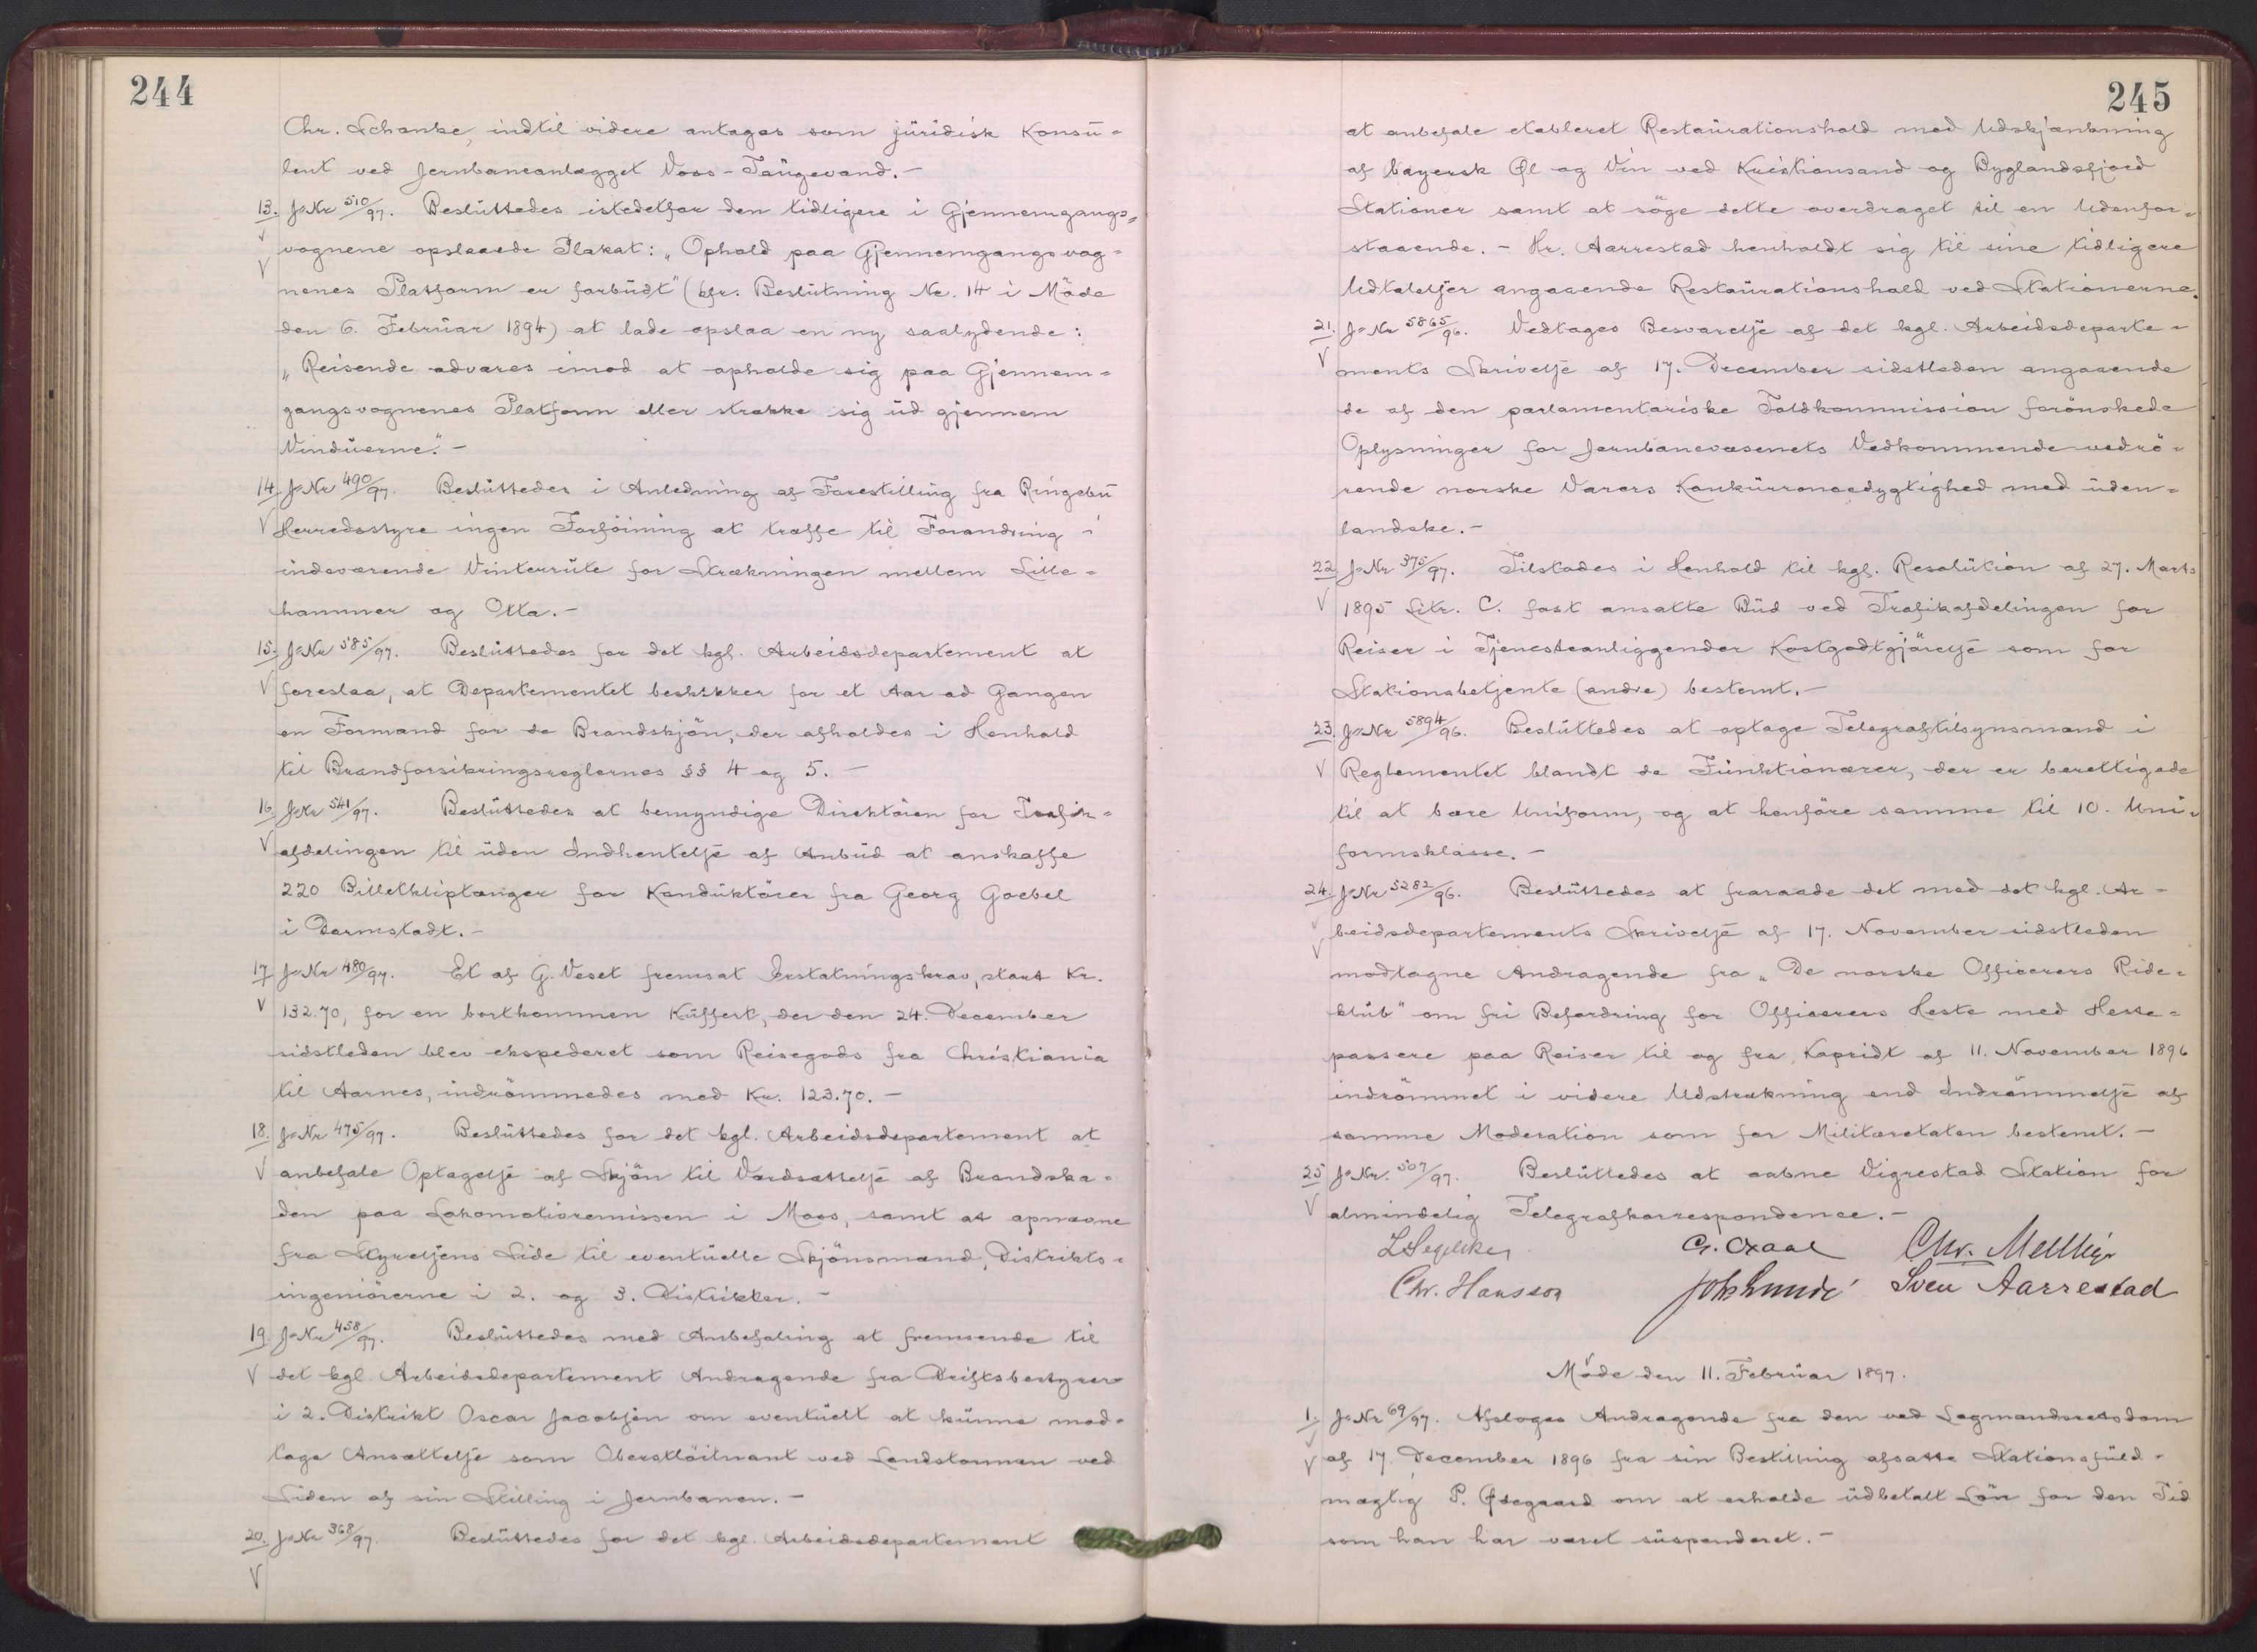 244
Chr. Schanke, indtil videre antages som juridisk Konsu-
lent ved Jernbaneanlægget Voss-Taugevand.-
13. J.Nr 510/97. Besluttedes istedetfor den tidligere i Gjennemgangs-
vognene opslaaede Plakat: „Ophold paa Gjennemgangsvog-
nenes Platform er forbudt" (kfr. Beslutning No. 14 i Möde
den 6. Februar 1894) at lade opslaa en ny saalydende:
„Reisende advares imod at opholde sig paa Gjennem-
gangsvognenes Platform eller strække sig ud gjennem
Vinduerne".-
14. J.Nr 490/97. Besluttedes i Anledning af Forestilling fra Ringebu
Herredsstyre ingen Forföining at træffe til Forandring i
indeværende Vinterrute for Strækningen mellem Lille-
hammer og Otta.-
15. J.Nr 585/97. Besluttedes for det kgl. Arbeidsdepartement at
foreslaa, at Departementet beskikker for et Aar ad Gangen
en Formand for de Brandskjön, der afholdes i Henhold
til Brandforsikringsreglernes §§ 4 og 5.-
16. J.Nr 541/97. Besluttedes at bemyndige Direktören for Trafik-
afdelingen til uden Indhentelse af Anbud at anskaffe
220 Billetkliptænger for Konduktörer fra Georg Goebel
i Darmstadt.-
17. J.Nr 480/97. Et af G. Veset fremsat Erstatningskrav, stort Kr.
132.70, for en bortkommen Kuffert, der den 24. December
sidstleden blev ekspederet som Reisegods fra Christiania
til Aarnes, indrömmedes med Kr. 123.70.-
18. J.Nr 475/97. Besluttedes for det kgl. Arbeidsdepartement at
anbefale Optagelse af Skjön til Værdsættelse af Brandska-
den paa Lokomotivremissen i Moss, samt at opnævne
fra Styrelsens Side til eventuelle Skjönsmænd, Distrikts-
ingeniörerne i 2. og 3. Distrikter.-
19. J.Nr 458/97. Besluttedes med Anbefaling at fremsende til
det kgl. Arbeidsdepartement Andragende fra Driftsbestyrer
i 2. Distrikt Oscar Jacobsen om eventuelt at kunne mod-
tage Ansættelse som Oberstlöitnant ved Landstormen ved
Siden af sin Stilling i Jernbanen.-
20. J.Nr 368/97. Besluttedes for det kgl. Arbeidsdepartement
245
at anbefale etableret Restaurationshold med Udskjænkning
af bayersk Øl og Vin ved Kristiansand og Byglandsfjord
Stationer samt at söge dette overdraget til en Udenfor-
staaende.- Hr. Aarrestad henholdt sig til sine tidligere
Udtalelser angaaende Restaurationshold ved Stationerne.
21. J.Nr 5865/96. Vedtages Besvarelse af det kgl. Arbeidsdeparte-
ments Skrivelse af 17. December sidstleden angaaende
de af den parlamentariske Toldkommission forönskede
Oplysninger for Jernbanevæsenets Vedkommende vedrö-
rende norske Varers Konkurrancedygtighed med uden-
landske.-
22. J.Nr 375/97. Tilstodes i Henhold til kgl. Resolution af 27. Marts
1895 Litr. C. fast ansatte Bud ved Trafikafdelingen for
Reiser i Tjenesteanliggender Kostgodtgjörelse som for
Stationsbetjente (andre) bestemt.-
23. J.Nr 5894/96. Besluttedes at optage Telegraftilsynsmand i
Reglementet blandt de Funktionærer, der er berettigede
til at bære Uniform, og at henföre samme til 10. Uni-
formsklasse.-
24. J.Nr 5282/96. Besluttedes at fraraade det med det kgl. Ar-
beidsdepartements Skrivelse af 17. November sidstleden
modtagne Andragende fra „De norske Officerers Ride-
klub" om fri Befordring for Officerers Heste med Heste-
passere paa Reiser til og fra Kapridt af 11. November 1896
indrömmet i videre Udstrækning end Indrömmelse af
samme Moderation som for Militæretaten bestemt.-
25. J.Nr. 507/97. Besluttedes at aabne Vigrestad Station for
almindelig Telegrafkorrespondence.-
LSegelcke G. Oxaal Chr. Melthigr
Chr. Hansson Joh Lunde Sven Aarrestad
Möde den 11. Februar 1897.
1. J.Nr 69/97. Afsloges Andragende fra den ved Lagmandsretsdom
af 17. December 1896 fra sin Bestilling afsatte Stationsfuld-
mægtig P. Ødegaard om at erholde udbetalt Lön for den Tid
som han har været suspenderet.-